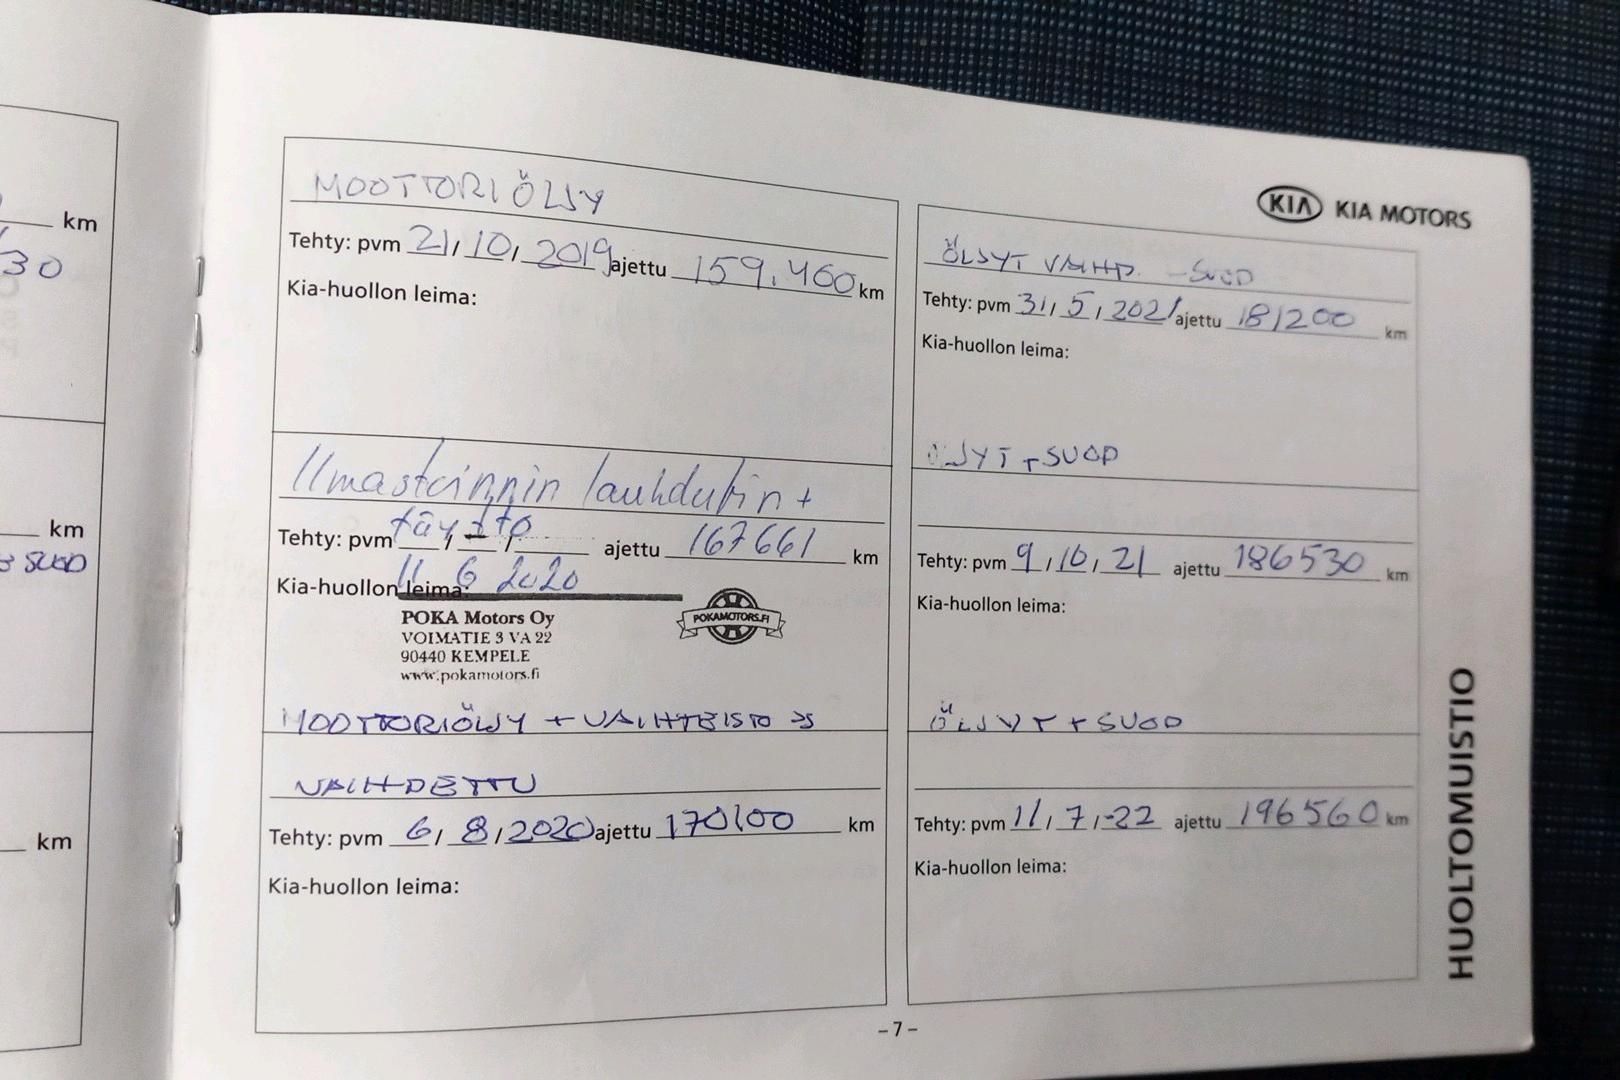 km
30
km
SUOD
km
MOOTTORIÖLJY
Tehty: pvm 21, 10, 2019 ajettu 159.460 km
Kia-huollon leima:
Ilmastoinnin lauhdutin +
täyttö
Tehty: pvm , , ajettu 167661 km
11 6 2020
Kia-huollon leima:
POKA Motors Oy
VOIMATIE 3 VA 22
90440 KEMPELE
www.pokamotors.fi
POKAMOTORS.FI
MOOTTORIÖLJY + VAIHTEISTO
VAIHDETTU
Tehty: pvm 6, 8, 2020 ajettu 170100 km
Kia-huollon leima:
KIA KIA MOTORS
ÖLJYT VAIHD. -SUOD
Tehty: pvm 31, 5, 2021 ajettu 181200 km
Kia-huollon leima:
ÖLJYT + SUOD
Tehty: pvm 9, 10, 21 ajettu 186530 km
Kia-huollon leima:
ÖLJYT + SUOD
Tehty: pvm 11, 7, -22 ajettu 196560 km
Kia-huollon leima:
HUOLTOMUISTIO
- 7 -